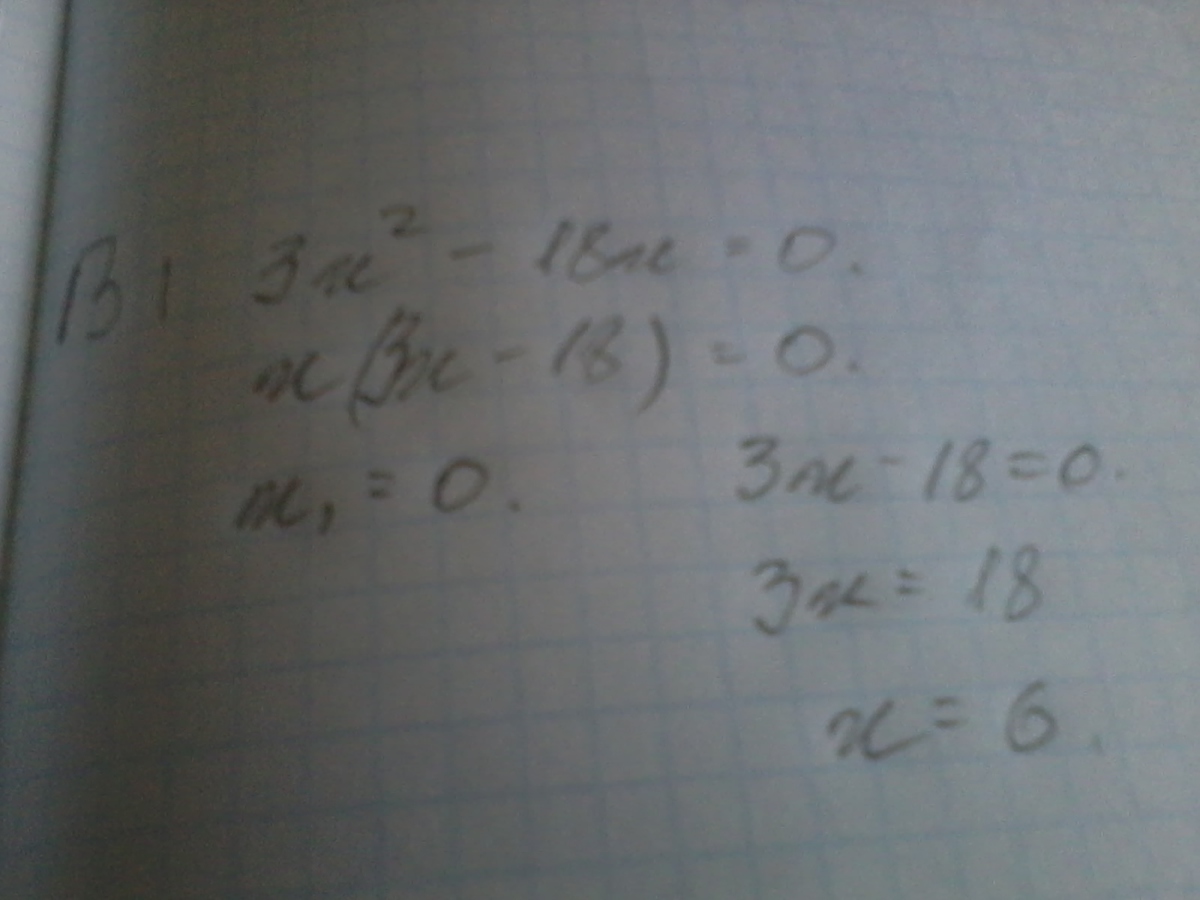 В1 3x² - 18x = 0.
x(3x - 18) = 0.
x₁ = 0. 3x - 18 = 0.
3x = 18
x = 6.